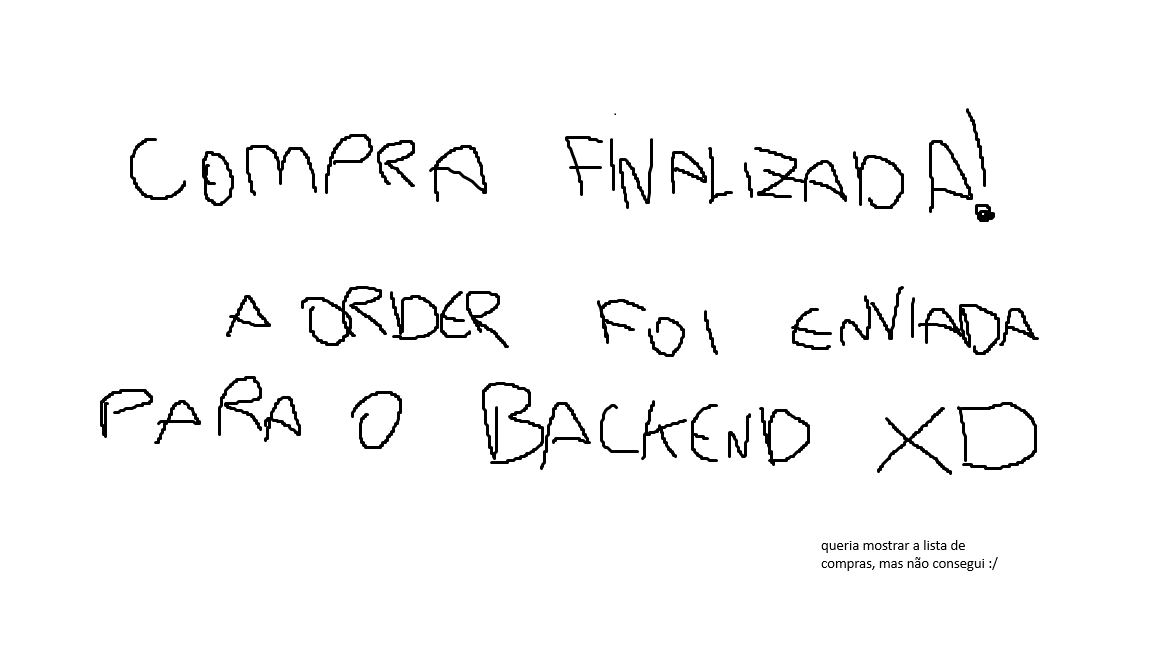 COMPRA FINALIZADA!
A ORDER FOI ENVIADA
PARA O BACKEND XD
queria mostrar a lista de
compras, mas não consegui :/